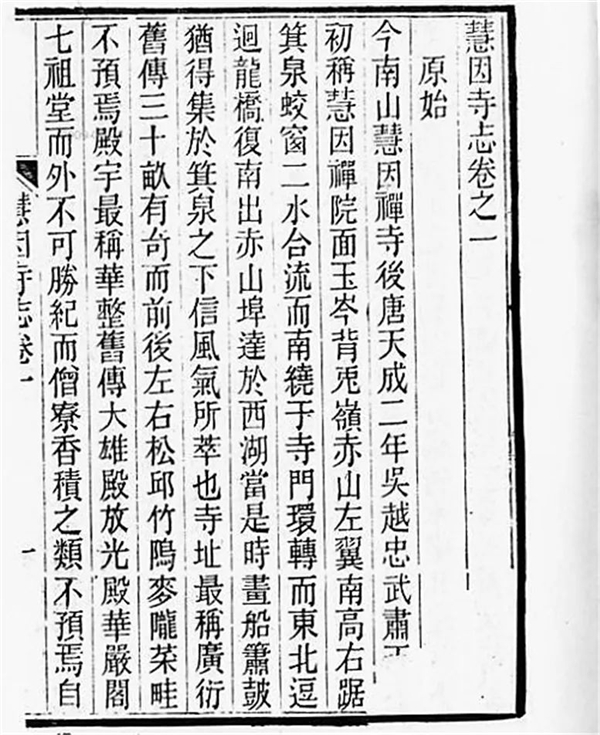 慧因寺志卷之一
原始
今南山慧因禪寺後唐天成二年吳越忠武肅王
初稱慧因禪院面玉岑背兎嶺赤山左翼南高右踞
箕泉蛟窗二水合流而南繞于寺門環轉而東北逗
迴龍橋復南出赤山埠達於西湖當是時畫船簫鼓
猶得集於箕泉之下信風氣所萃也寺址最稱廣衍
舊傳三十畝有奇而前後左右松邱竹隝麥隴茶畦
不預焉殿宇最稱華整舊傳大雄殿放光殿華嚴閣
七祖堂而外不可勝紀而僧寮香積之類不預焉自
慧因寺志卷一
一